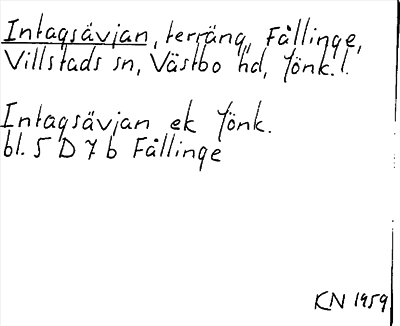 Intagsävjan, terräng, Fållinge,
Villstads sn, Västbo hd, Jönk. l.
Intagsävjan ek Jönk.
bl. 5 D 7 b Fållinge
KN 1959